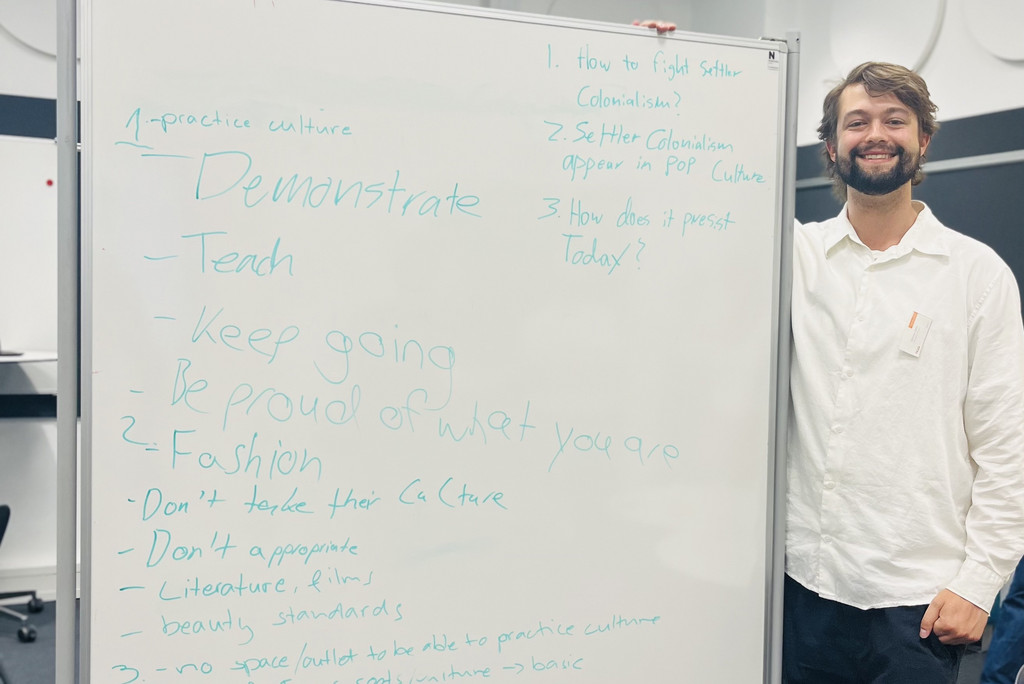 1. How to fight Settler
Colonialism?
2. Settler Colonialism
appear in POP Culture
3. How does it presist
Today?
N
1. - practice culture
- Demonstrate
- Teach
- Keep going
- Be proud of what you are
2.
- Fashion
- Don't take their Culture
- Don't appropriate
- Literature, films
- beauty standards
3. - no space/outlet to be able to practice culture
→ basic